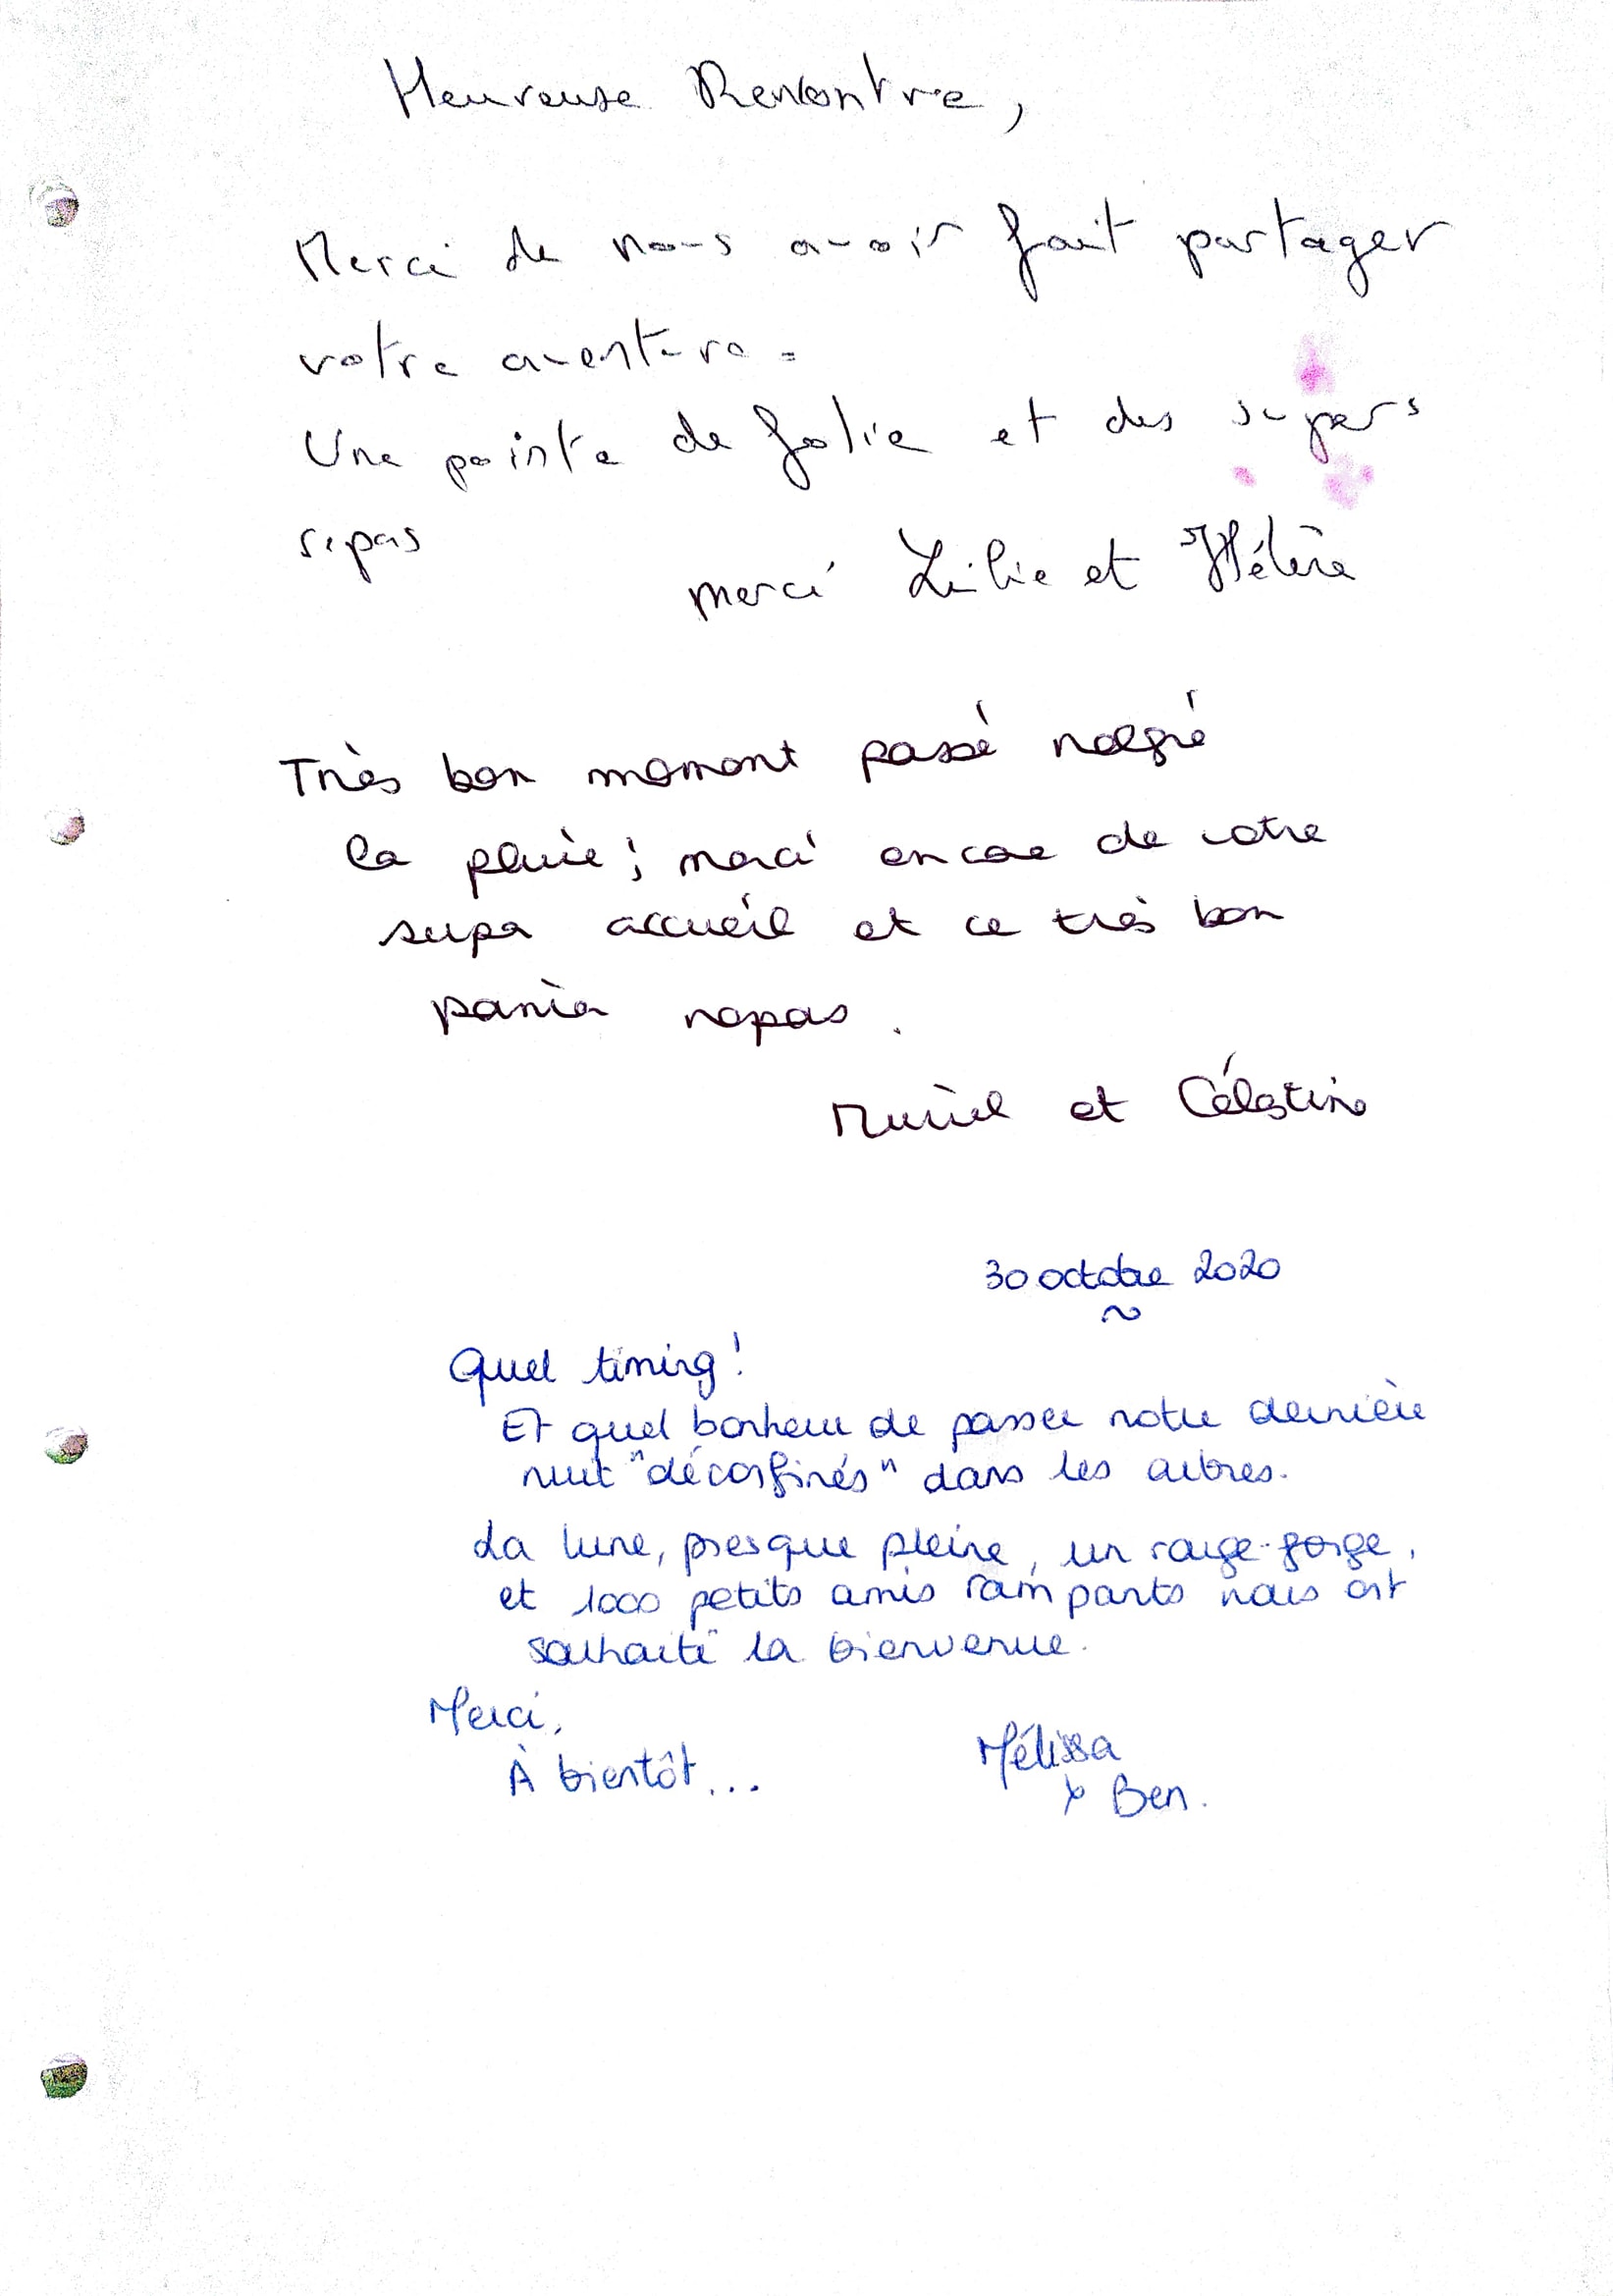 Heureuse Rencontre,
Merci de nous avoir fait partager
votre aventure.
Une pointe de folie et des supers
repas
merci Lilie et Hélène
Très bon moment passé malgré
la pluie ; merci encore de votre
super accueil et ce très bon
panier repas.
Muriel et Célestine
30 octobre 2020
~
Quel timing !
Et quel bonheur de passer notre dernière
nuit "déconfinés" dans les arbres.
La lune, presque pleine, un rouge-gorge,
et 1000 petits amis rampants nous ont
souhaité la bienvenue.
Merci,
À bientôt...
Mélissa
& Ben.